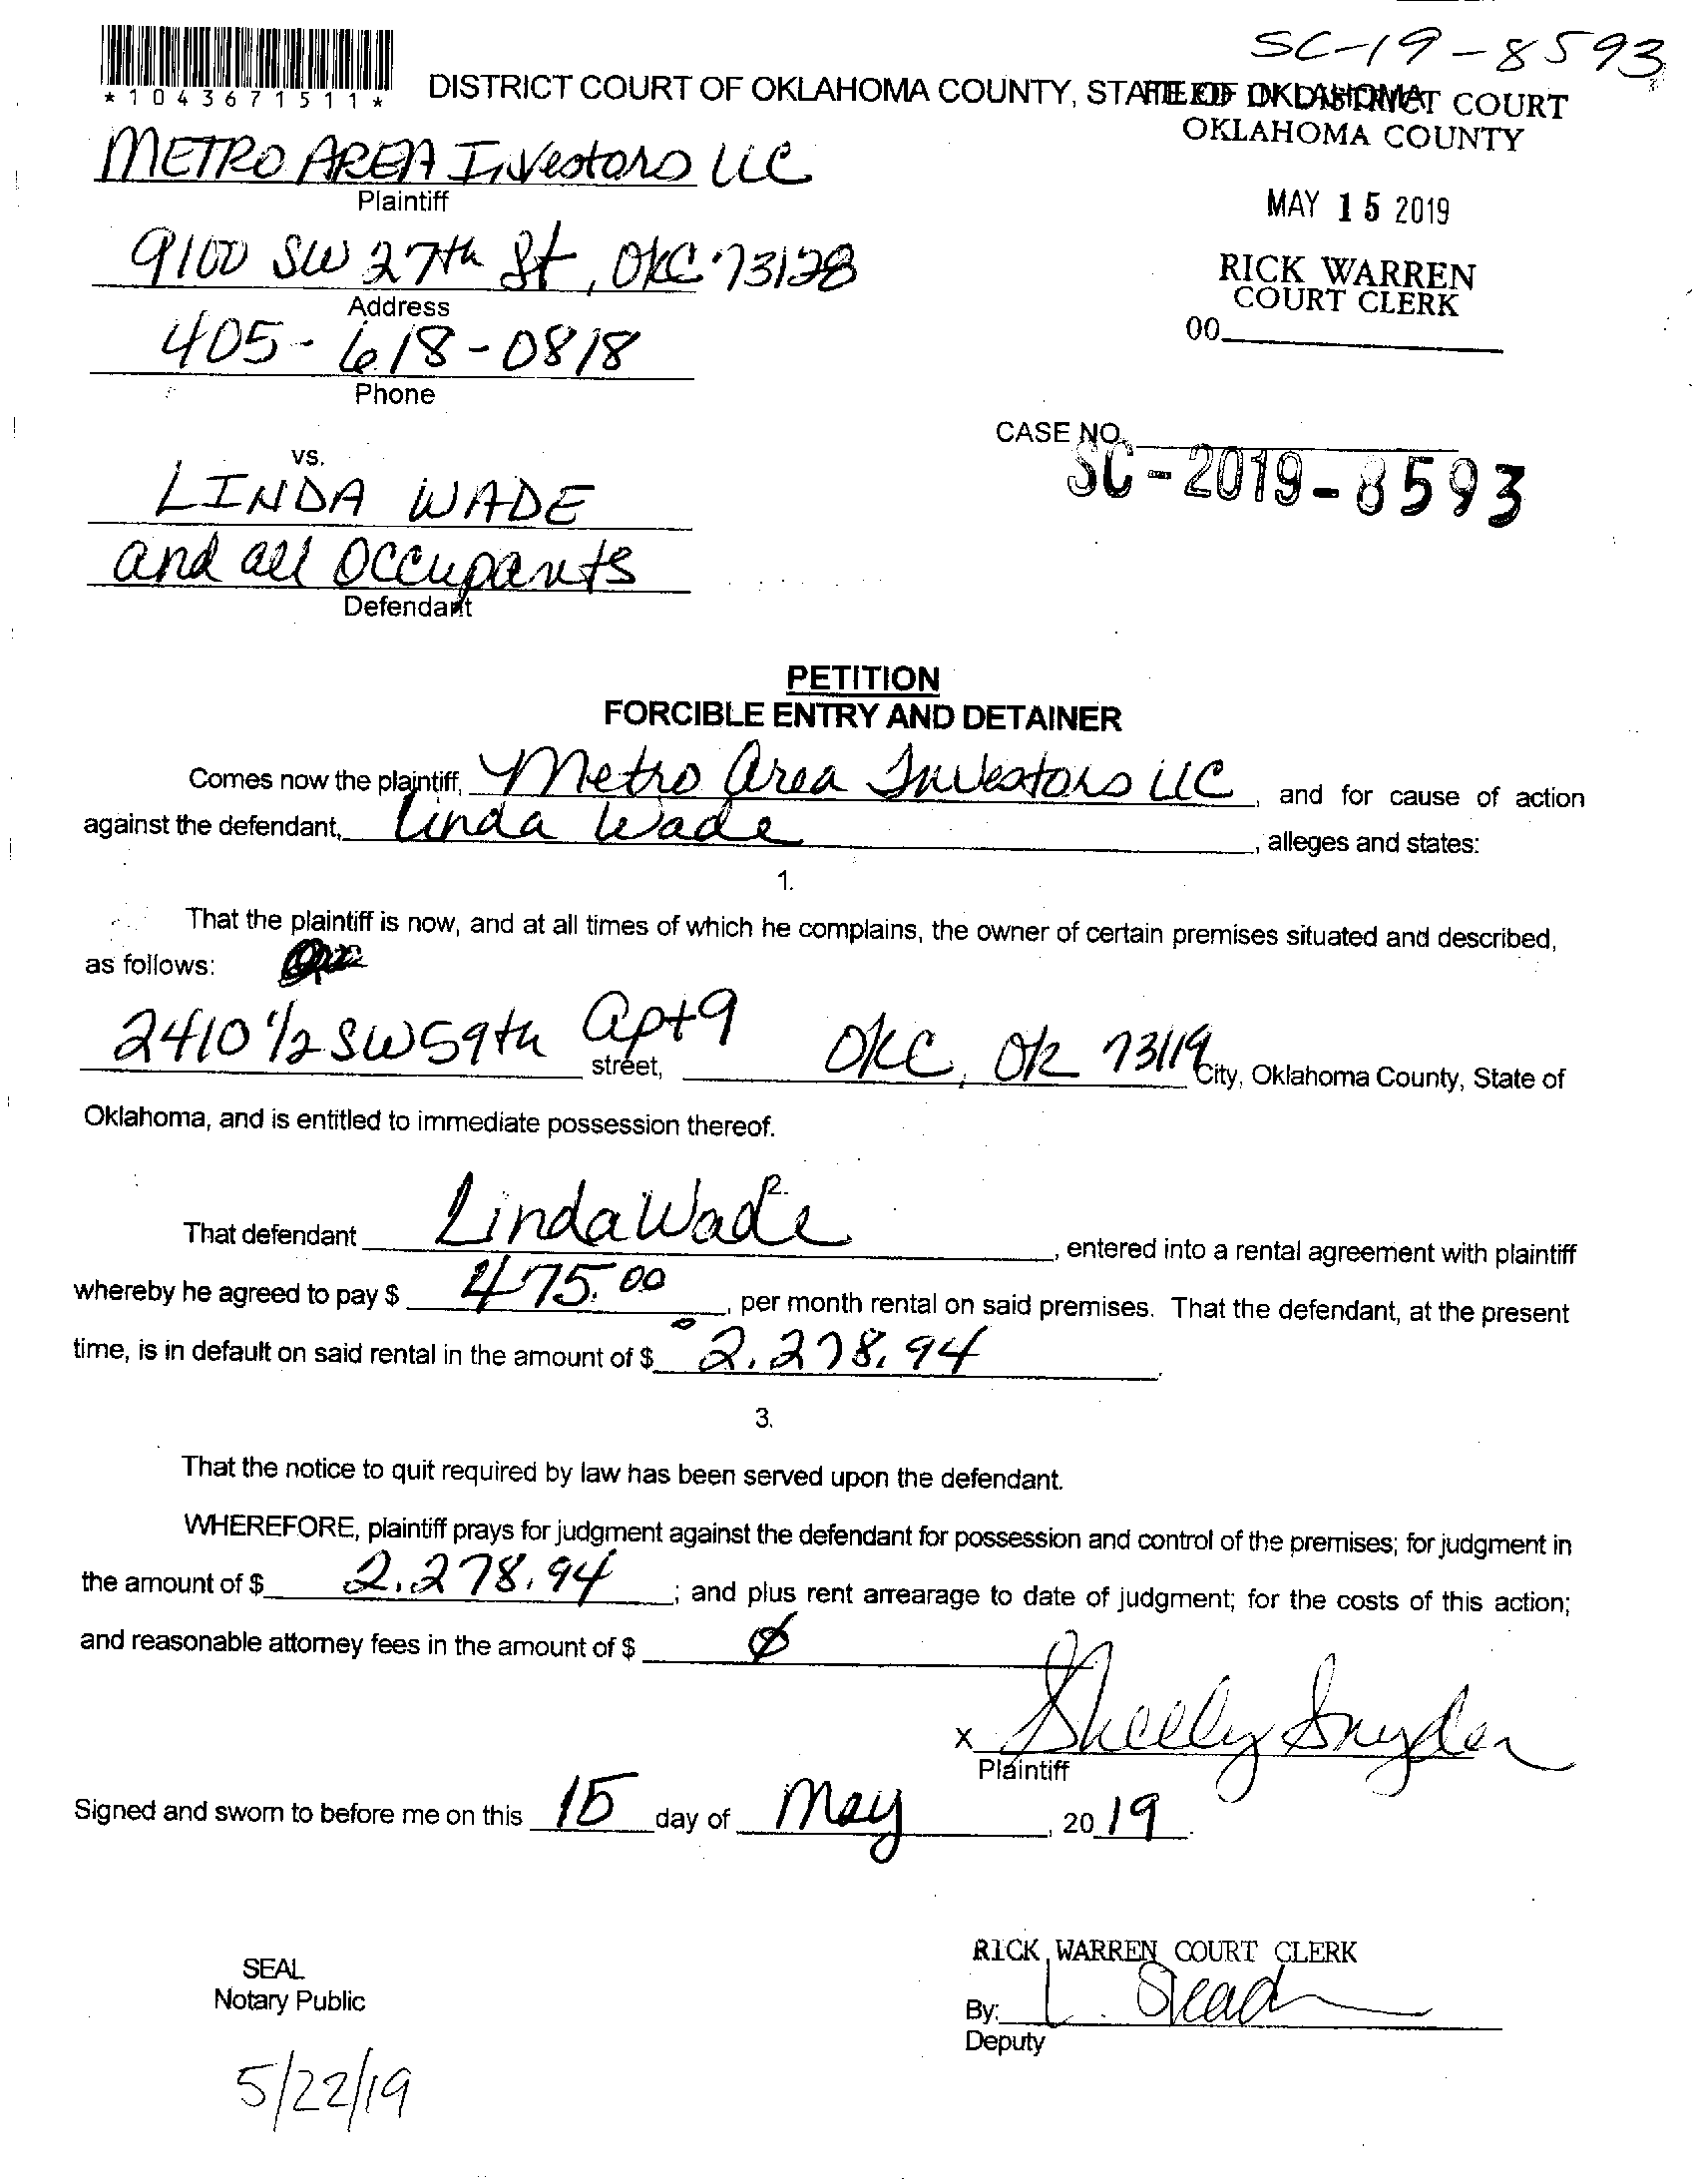 SC-19-8593
*1043671511*
DISTRICT COURT OF OKLAHOMA COUNTY, STATE OF OKLAHOMA
FILED IN DISTRICT COURT
OKLAHOMA COUNTY
METRO AREA Investors LLC
Plaintiff
MAY 15 2019
9100 SW 27th St, OKC 73128
Address
RICK WARREN
COURT CLERK
405-618-0818
Phone
00
CASE NO.
SC-2019-8593
vs.
LINDA WADE
and all Occupants
Defendant
PETITION
FORCIBLE ENTRY AND DETAINER
Comes now the plaintiff, Metro Area Investors LLC, and for cause of action
against the defendant, Linda Wade, alleges and states:
1.
That the plaintiff is now, and at all times of which he complains, the owner of certain premises situated and described,
as follows:
2410 1/2 SW 59th apt 9 street, OKC, OK 73119 City, Oklahoma County, State of
Oklahoma, and is entitled to immediate possession thereof.
2.
That defendant Linda Wade, entered into a rental agreement with plaintiff
whereby he agreed to pay $ 475.00, per month rental on said premises. That the defendant, at the present
time, is in default on said rental in the amount of $ 2,278.94.
3.
That the notice to quit required by law has been served upon the defendant.
WHEREFORE, plaintiff prays for judgment against the defendant for possession and control of the premises; for judgment in
the amount of $ 2,278.94; and plus rent arrearage to date of judgment; for the costs of this action;
and reasonable attorney fees in the amount of $ Ø
x Shelly Snyder
Plaintiff
Signed and sworn to before me on this 15 day of May, 2019.
SEAL
Notary Public
RICK WARREN COURT CLERK
By:
Deputy
5/22/19